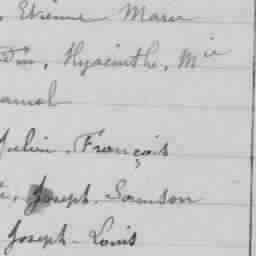 , Etienne Marie
, Hyacinthe, Mie
Julien. François
, Joseph. Samson
Joseph - Louis